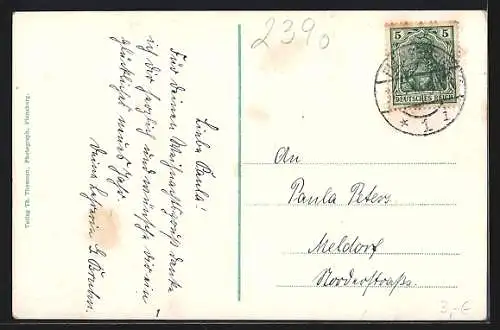 2390
5 5
DEUTSCHES REICH
* 1
Verlag Th. Thomsen, Photograph, Flensburg.
Liebe Paula!
Für deinen Weihnachtsgruß danke
ich dir herzlich und wünsche dir ein
glückliches neues Jahr.
Deine Lehrerin G. Bruhn.
An
Paula Peters
Meldorf
Norderstraße.
3,-€